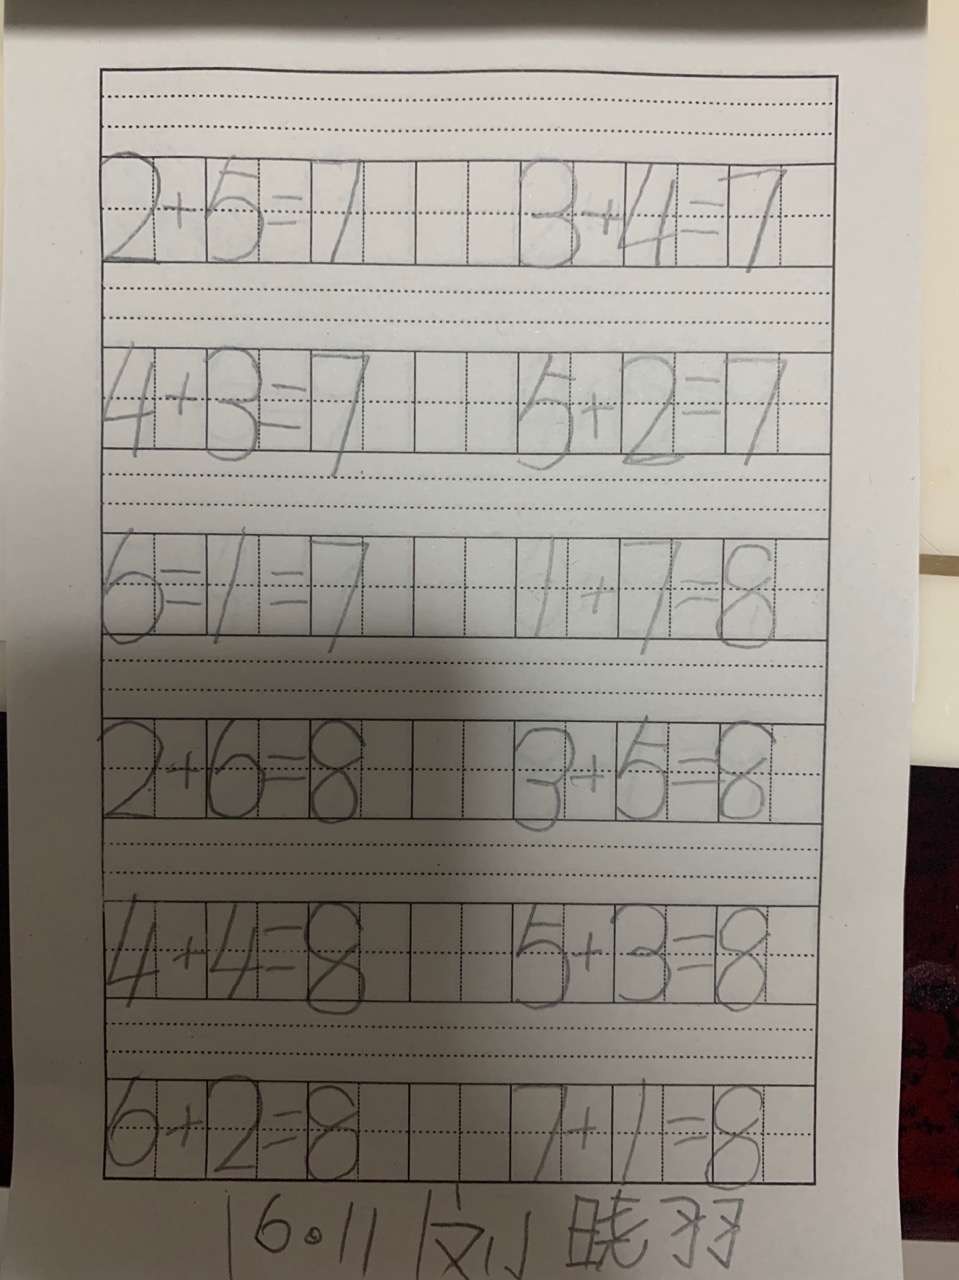 2+5=7 3+4=7
4+3=7 5+2=7
6=1=7 1+7=8
2+6=8 3+5=8
4+4=8 5+3=8
6+2=8 7+1=8
16.11 刘晓羽